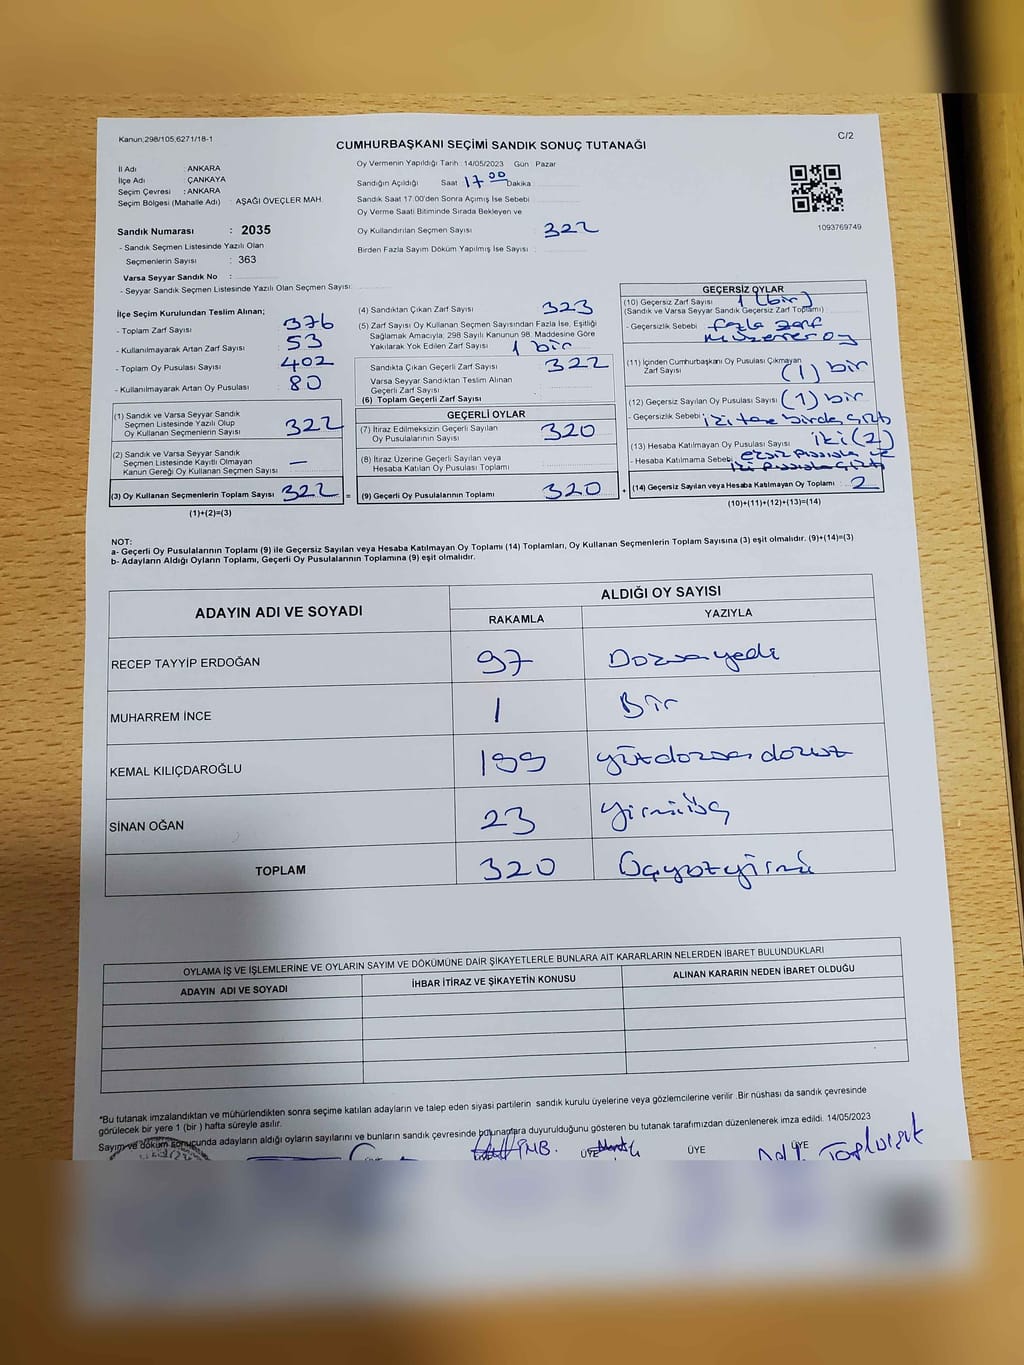 Kanun;298/105,6271/18-1
C/2
CUMHURBAŞKANI SEÇİMİ SANDIK SONUÇ TUTANAĞI
İl Adı : ANKARA
İlçe Adı : ÇANKAYA
Seçim Çevresi : ANKARA
Seçim Bölgesi (Mahalle Adı) : AŞAĞI ÖVEÇLER MAH.
Sandık Numarası : 2035
- Sandık Seçmen Listesinde Yazılı Olan
Seçmenlerin Sayısı : 363
Varsa Seyyar Sandık No :
- Seyyar Sandık Seçmen Listesinde Yazılı Olan Seçmen Sayısı:
Oy Vermenin Yapıldığı Tarih : 14/05/2023 Gün : Pazar
Sandığın Açıldığı Saat 17 00 Dakika
Sandık Saat 17.00'den Sonra Açımış İse Sebebi
Oy Verme Saati Bitiminde Sırada Bekleyen ve
Oy Kullandırılan Seçmen Sayısı : 322
Birden Fazla Sayım Döküm Yapılmış İse Sayısı :
1093769749
İlçe Seçim Kurulundan Teslim Alınan;
- Toplam Zarf Sayısı : 376
- Kullanılmayarak Artan Zarf Sayısı : 53
- Toplam Oy Pusulası Sayısı : 402
- Kullanılmayarak Artan Oy Pusulası : 80
(1) Sandık ve Varsa Seyyar Sandık
Seçmen Listesinde Yazılı Olup
Oy Kullanan Seçmenlerin Sayısı : 322
(2) Sandık ve Varsa Seyyar Sandık
Seçmen Listesinde Kayıtlı Olmayan
Kanun Gereği Oy Kullanan Seçmen Sayısı : —
(3) Oy Kullanan Seçmenlerin Toplam Sayısı : 322 =
(1)+(2)=(3)
(4) Sandıktan Çıkan Zarf Sayısı : 323
(5) Zarf Sayısı Oy Kullanan Seçmen Sayısından Fazla İse, Eşitliği
Sağlamak Amacıyla; 298 Sayılı Kanunun 98. Maddesine Göre
Yakılarak Yok Edilen Zarf Sayısı : 1 bir
Sandıkta Çıkan Geçerli Zarf Sayısı : 322
Varsa Seyyar Sandıktan Teslim Alınan
Geçerli Zarf Sayısı
(6) Toplam Geçerli Zarf Sayısı :
GEÇERLİ OYLAR
(7) İtiraz Edilmeksizin Geçerli Sayılan
Oy Pusulalarının Sayısı : 320
(8) İtiraz Üzerine Geçerli Sayılan veya
Hesaba Katılan Oy Pusulası Toplamı :
(9) Geçerli Oy Pusulalarının Toplamı : 320 +
GEÇERSİZ OYLAR
(10) Geçersiz Zarf Sayısı : 1 (bir)
(Sandık ve Varsa Seyyar Sandık Geçersiz Zarf Toplamı)
- Geçersizlik Sebebi : fazla zarf
oy
(11) İçinden Cumhurbaşkanı Oy Pusulası Çıkmayan
Zarf Sayısı : (1) bir
(12) Geçersiz Sayılan Oy Pusulası Sayısı : (1) bir
- Geçersizlik Sebebi : iki tane birde çıktı
(13) Hesaba Katılmayan Oy Pusulası Sayısı : iki (2)
- Hesaba Katılmama Sebebi : ve
iki pusula çıktı
(14) Geçersiz Sayılan veya Hesaba Katılmayan Oy Toplamı : 2
(10)+(11)+(12)+(13)=(14)
NOT:
a- Geçerli Oy Pusulalarının Toplamı (9) ile Geçersiz Sayılan veya Hesaba Katılmayan Oy Toplamı (14) Toplamları, Oy Kullanan Seçmenlerin Toplam Sayısına (3) eşit olmalıdır. (9)+(14)=(3)
b- Adayların Aldığı Oyların Toplamı, Geçerli Oy Pusulalarının Toplamına (9) eşit olmalıdır.
ADAYIN ADI VE SOYADI ALDIĞI OY SAYISI
RAKAMLA YAZIYLA
RECEP TAYYİP ERDOĞAN 97 Doksanyedi
MUHARREM İNCE 1 Bir
KEMAL KILIÇDAROĞLU 199 yüzdoksandokuz
SİNAN OĞAN 23 yirmiüç
TOPLAM 320 Üçyüzyirmi
OYLAMA İŞ VE İŞLEMLERİNE VE OYLARIN SAYIM VE DÖKÜMÜNE DAİR ŞİKAYETLERLE BUNLARA AİT KARARLARIN NELERDEN İBARET BULUNDUKLARI
ADAYIN ADI VE SOYADI İHBAR İTİRAZ VE ŞİKAYETİN KONUSU ALINAN KARARIN NEDEN İBARET OLDUĞU
*Bu tutanak imzalandıktan ve mühürlendikten sonra seçime katılan adayların ve talep eden siyasi partilerin sandık kurulu üyelerine veya gözlemcilerine verilir .Bir nüshası da sandık çevresinde
görülecek bir yere 1 (bir ) hafta süreyle asılır.
Sayım ve döküm sonucunda adayların aldığı oyların sayılarını ve bunların sandık çevresinde bulunanlara duyurulduğunu gösteren bu tutanak tarafımızdan düzenlenerek imza edildi. 14/05/2023
ÜYE ÜYE ÜYE